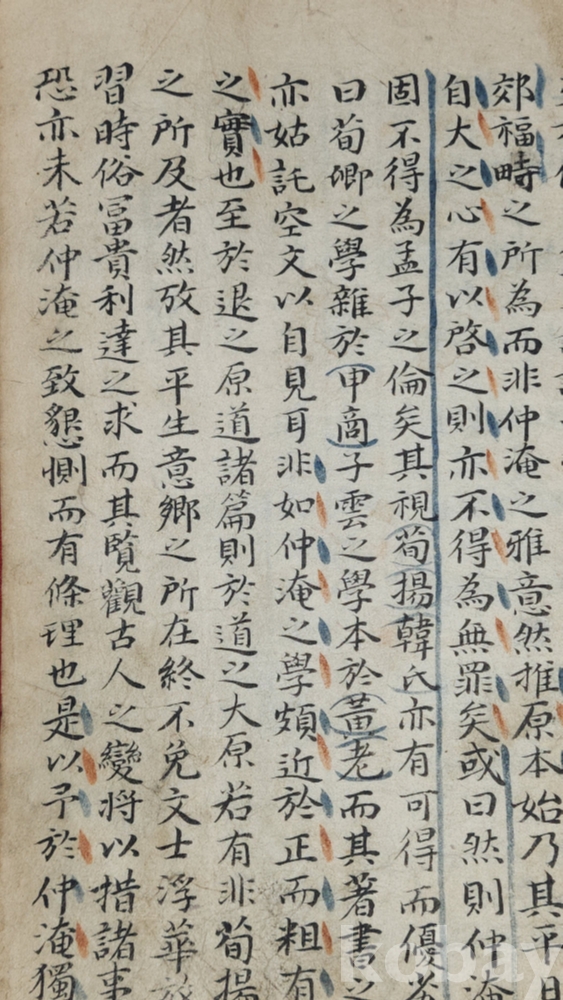 郊福畤之所為而非仲淹之雅意然推原本始乃其平日
自大之心有以啓之則亦不得為無罪矣或曰然則仲淹
固不得為孟子之倫矣其視荀揚韓氏亦有可得而優劣
曰荀卿之學雜於申商子雲之學本於黃老而其著書之
亦姑託空文以自見耳非如仲淹之學頗近於正而粗有
之實也至於退之原道諸篇則於道之大原若有非荀揚
之所及者然攷其平生意鄉之所在終不免文士浮華放
習時俗冨貴利達之求而其覽觀古人之變將以措諸事
恐亦未若仲淹之致懇惻而有條理也是以予於仲淹獨
kobay